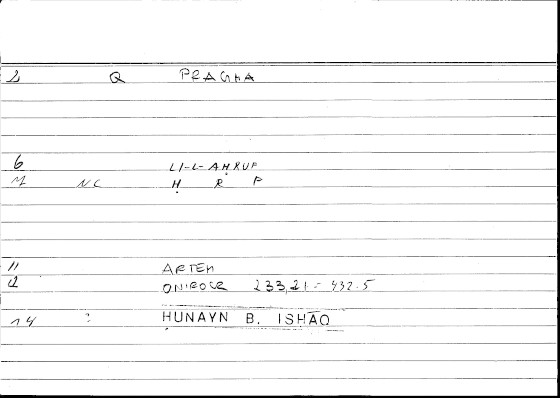 2 Q PRAGHA
6 LI-L-AḤRUF
M NC Ḥ R F
11 ARTEM
12 ONIROCR 233,21 - 432.5
14 : HUNAYN B. ISHĀQ